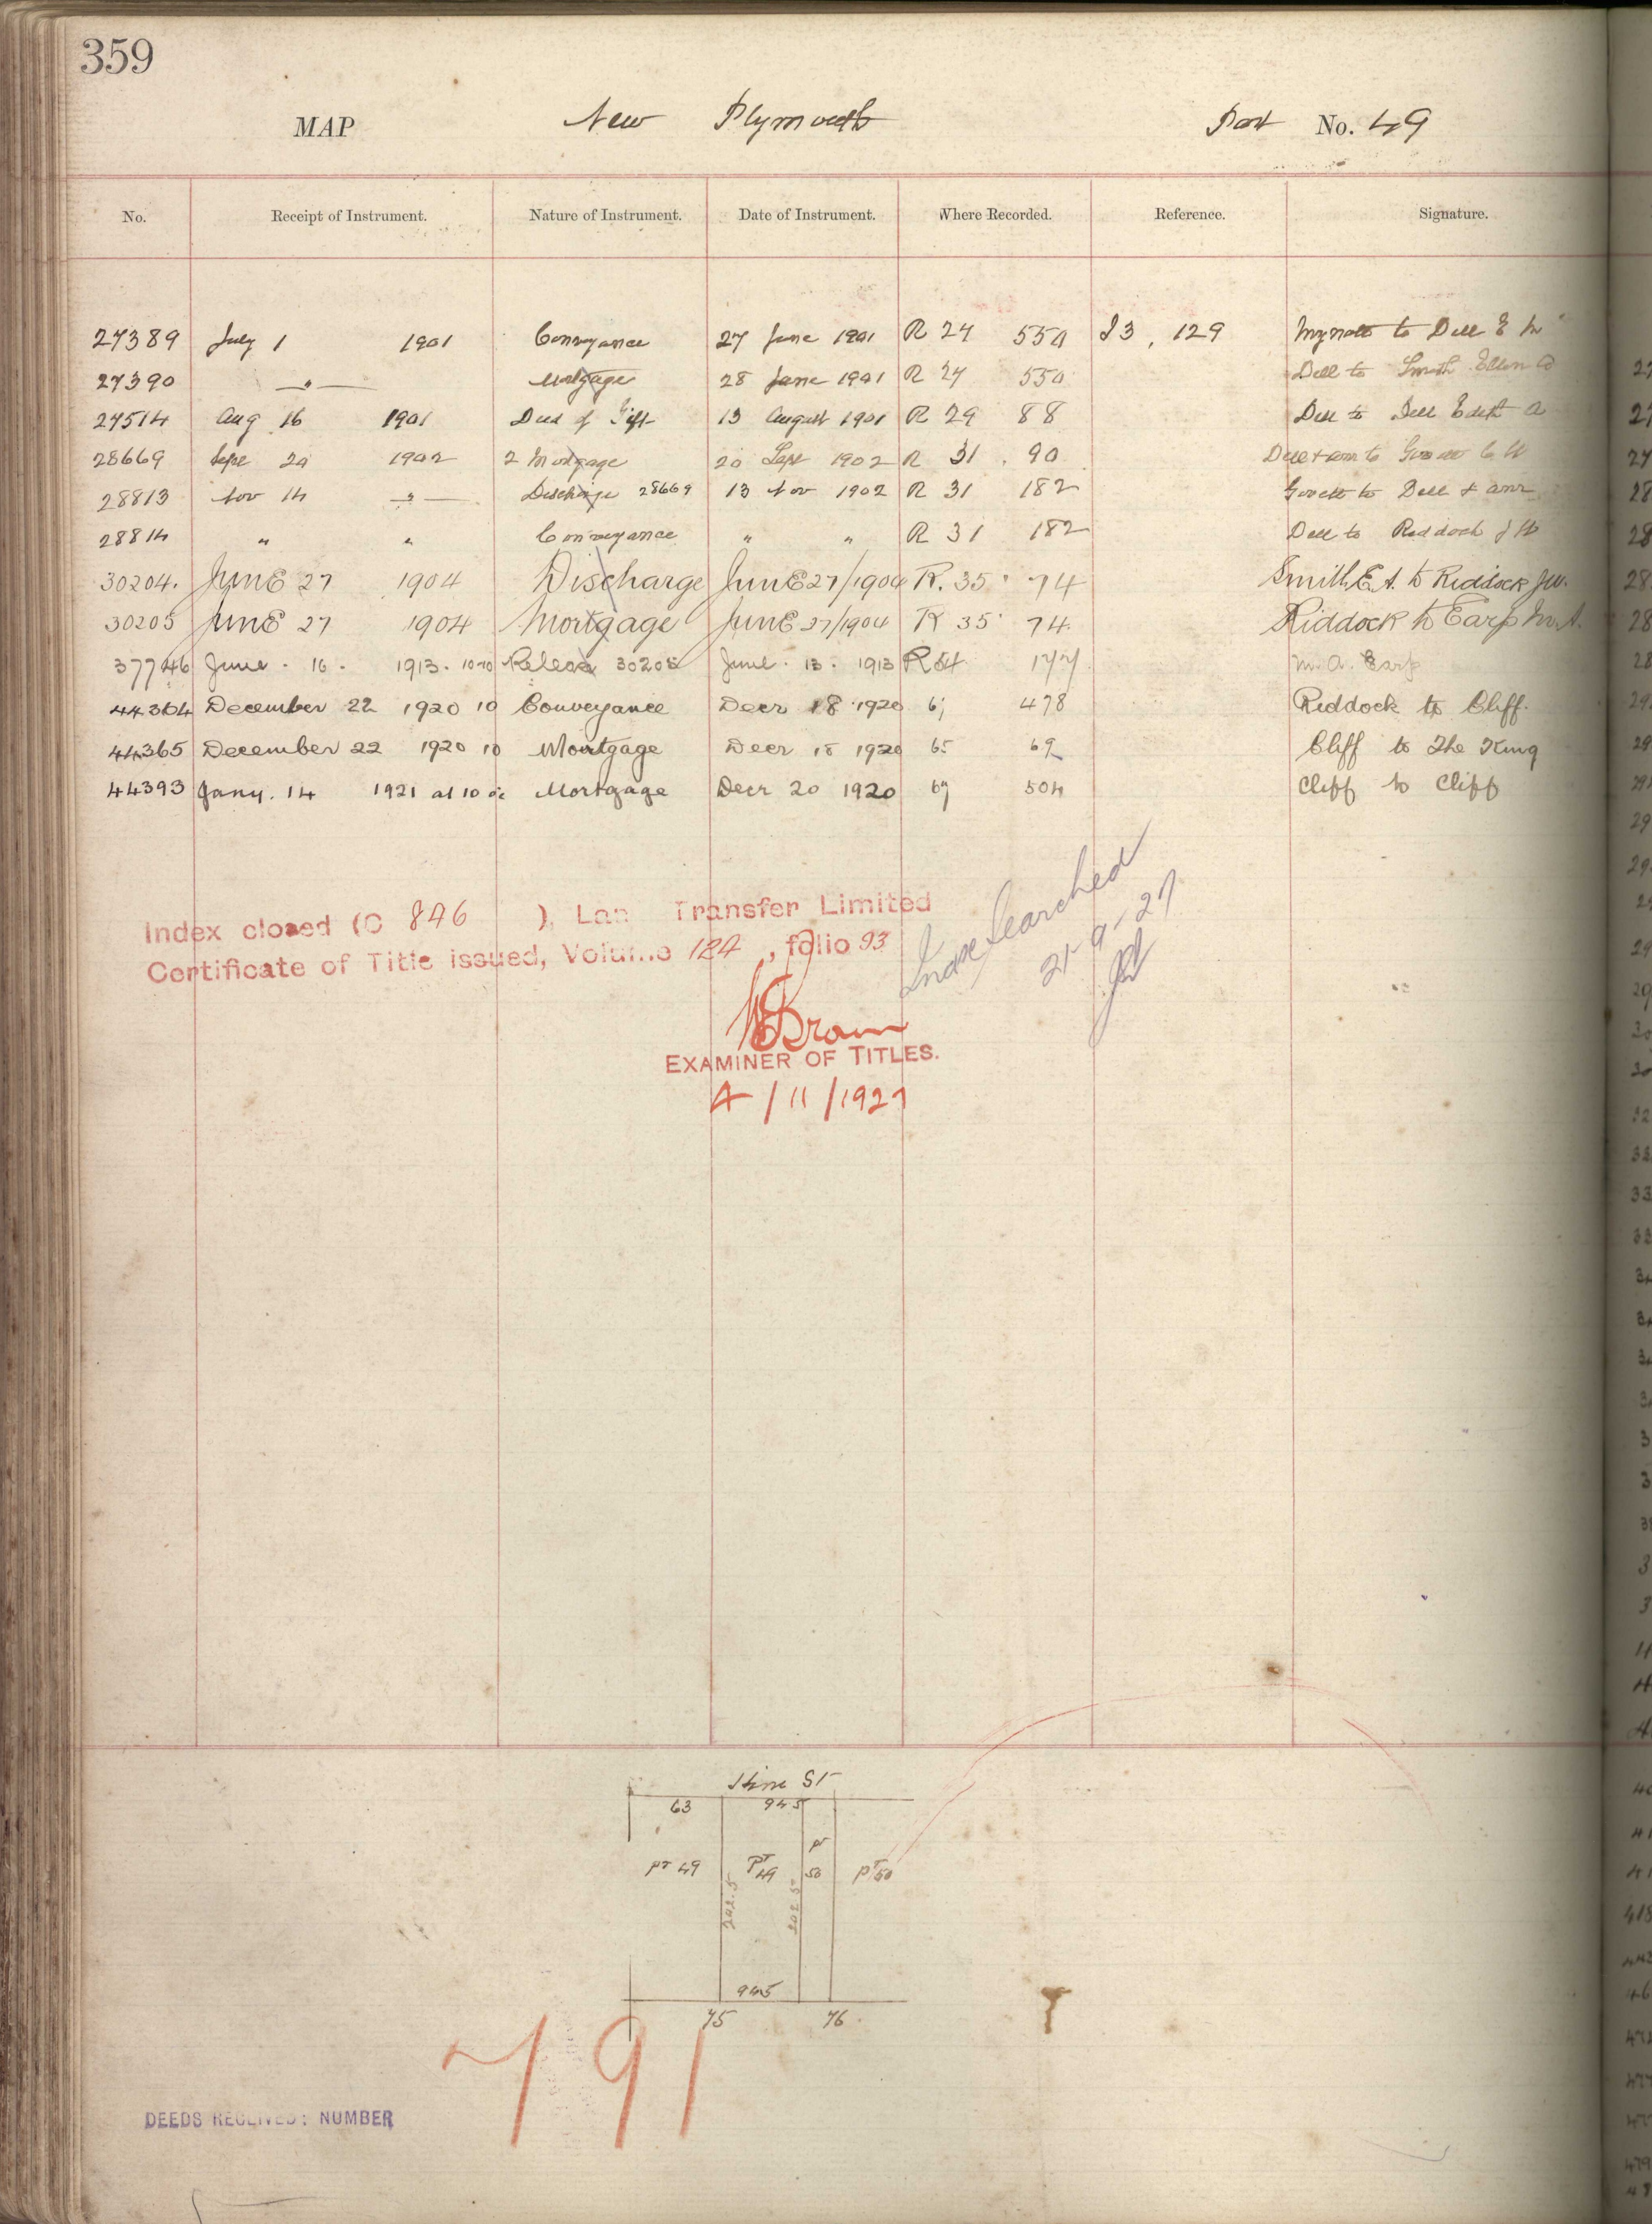 359
MAP New Plymouth Part No. 49
No. Receipt of Instrument. Nature of Instrument. Date of Instrument. Where Recorded. Reference. Signature.
27389 July 1 1901 Conveyance 27 June 1901 R 27 550 I 3, 129 to Dell E
27390 " Mortgage 28 June 1901 R 27 550 Dell to Smith Ellen
27514 Aug 16 1901 Deed of Gift 13 August 1901 R 29 88 Dell to Dell Edith A
28669 Sept 20 1902 2 Mortgage 20 Sept 1902 R 31 90 Dell & anr to Govett C W
28813 Nov 14 " Discharge 28669 13 Nov 1902 R 31 182 Govett to Dell & anr
28814 " " Conveyance " " R 31 182 Dell to Riddock J W
30204. JunE 27 1904 Discharge JunE 27/1904 R. 35 74 Smith E. A. to Riddock J W.
30205 JunE 27 1904 Mortgage JunE 27/1904 R 35 74. Riddock to Earp M. A.
37746 June. 16. 1913. Release 30205 June. 13. 1913 R 54 177. M. A. Earp
44364 December 22 1920 10 Conveyance Decr 18 1920 67 478 Riddock to Cliff.
44365 December 22 1920 10 Mortgage Decr 18 1920 65 69 Cliff to The King
44393 Jany. 14 1921 at 10 oc Mortgage Decr 20 1920 67 504 Cliff to Cliff
Index closed (C 846 ), Lan Transfer Limited
Certificate of Title issued, Volume 124, folio 93
Index Searched
21-9-27
EXAMINER OF TITLES.
4/11/1927
Hine St
63 945
pt 49 Pt 49 pt 50 pt 50
202.5 202.5
945
75 76
791
DEEDS RECEIVED: NUMBER